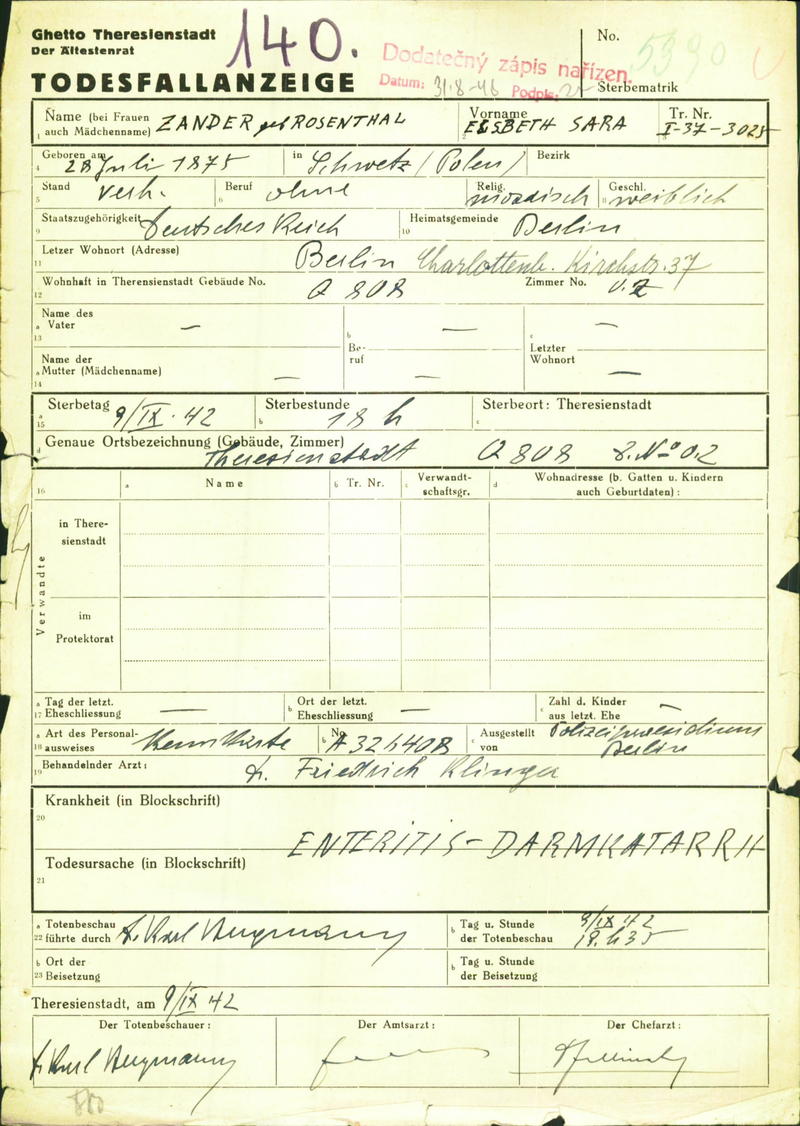 Ghetto Theresienstadt
Der Ältestenrat
140.
TODESFALLANZEIGE
Dodatečný zápis nařízen.
Datum: 31·8-46 Podpis:
No. 5390
Sterbematrik
Name (bei Frauen auch Mädchenname) ZANDER geb ROSENTHAL
Vorname ELSBETH SARA
Tr. Nr. I-37-3025
Geboren am 28 Juli 1875 in Schwetz (Polen) Bezirk
Stand verh. Beruf ohne Relig. mosaisch Geschl. weiblich
Staatszugehörigkeit Deutsches Reich Heimatsgemeinde Berlin
Letzer Wohnort (Adresse) Berlin Charlottenb. Kirchstr. 37
Wohnhaft in Therensienstadt Gebäude No. Q 808 Zimmer No. 0.2
Name des Vater — — —
Be-ruf
Letzter Wohnort
Name der Mutter (Mädchenname) — — —
Sterbetag 9/IX·42 Sterbestunde 18 h Sterbeort: Theresienstadt
Genaue Ortsbezeichnung (Gebäude, Zimmer) Theresienstadt Q 808 Z. No 0.2
Name Tr. Nr. Verwandt-schaftsgr. Wohnadresse (b. Gatten u. Kindern auch Geburtdaten):
Verwandte
in There-sienstadt
im Protektorat
Tag der letzt. Eheschliessung — Ort der letzt. Eheschliessung — Zahl d. Kinder aus letzt. Ehe —
Art des Personal-ausweises Kennkarte No. A 326408 Ausgestellt von Polizeipraesidium Berlin
Behandelnder Arzt: Dr. Friedrich Klinger
Krankheit (in Blockschrift)
ENTERITIS - DARMKATARRH
Todesursache (in Blockschrift)
Totenbeschau führte durch Dr. Karl Bergmann Tag u. Stunde der Totenbeschau 9/IX 42 18.h 35
Ort der Beisetzung Tag u. Stunde der Beisetzung
Theresienstadt, am 9/IX 42
Der Totenbeschauer: Der Amtsarzt: Der Chefarzt:
Dr. Karl Bergmann